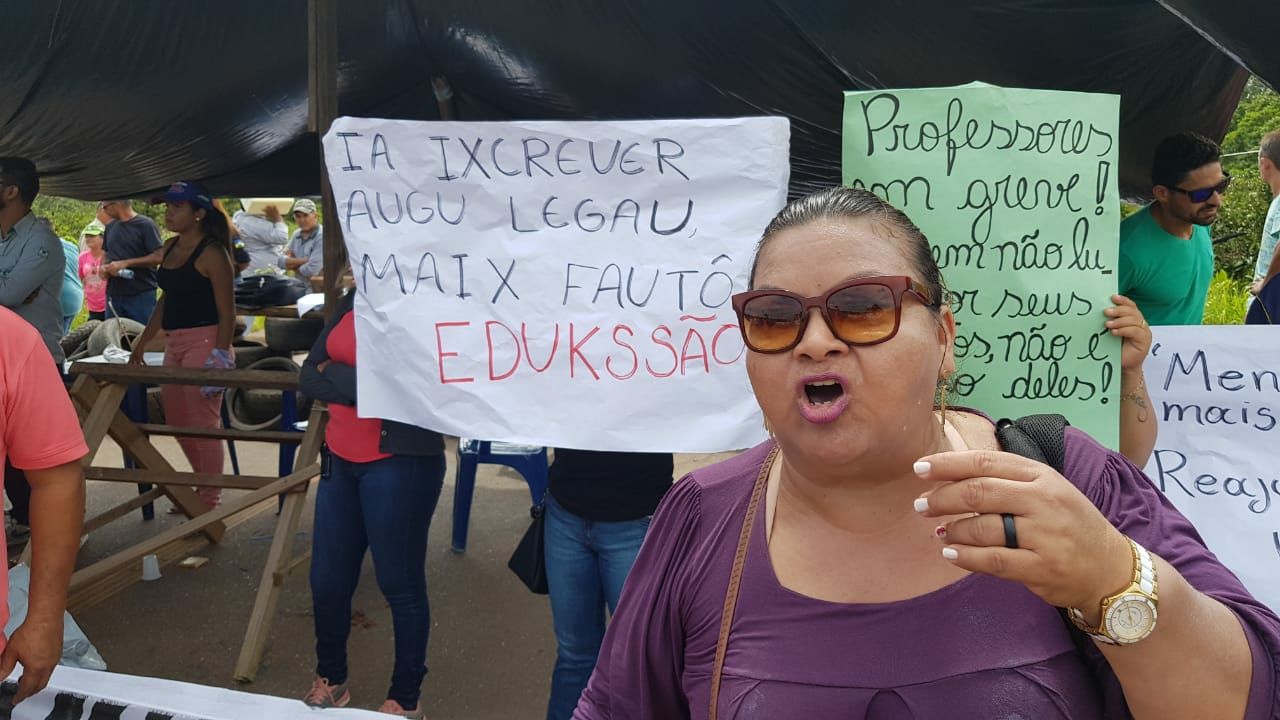 IA IXCREVER
AUGU LEGAU,
MAIX FAUTÔ
EDUKSSÃO
Professores
em greve!
não lu_
seus
não é
deles!
mais